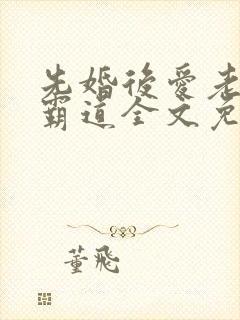 先婚後愛老
霸道全文免
董飛